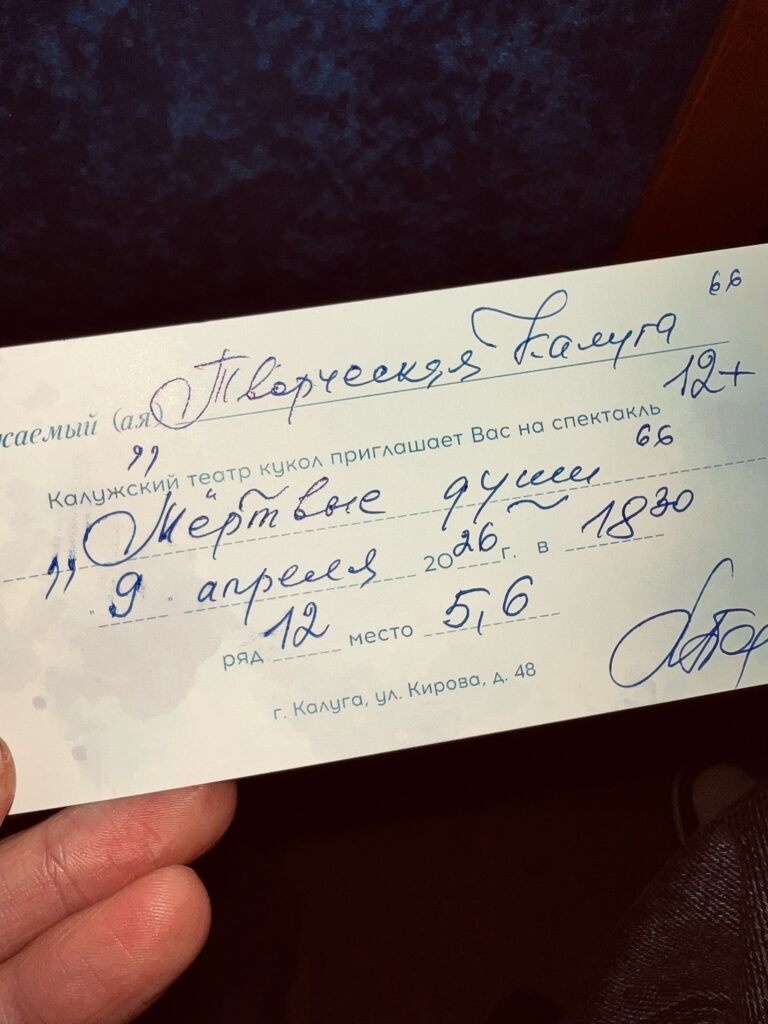 саемый (ая) „Творческая Калуга“
12+
Калужский театр кукол приглашает Вас на спектакль
„Мёртвые души“
"9" апреля 2026 г. в 18 30
ряд 12 место 5,6
г. Калуга, ул. Кирова, д. 48